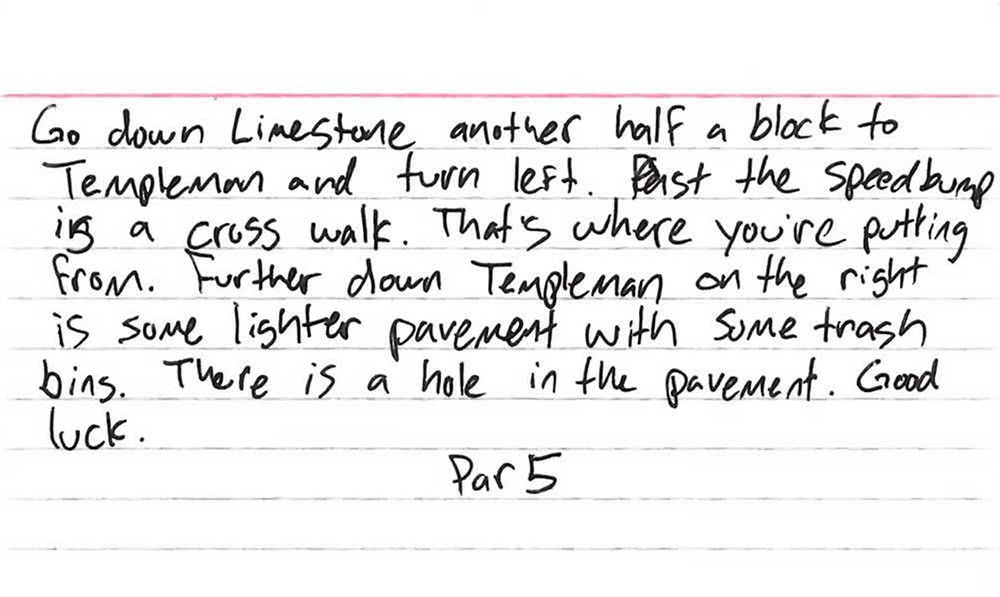 Go down Limestone another half a block to
Templeman and turn left. Past the speedbump
is a cross walk. That's where you're putting
from. Further down Templeman on the right
is some lighter pavement with some trash
bins. There is a hole in the pavement. Good
luck.
Par 5